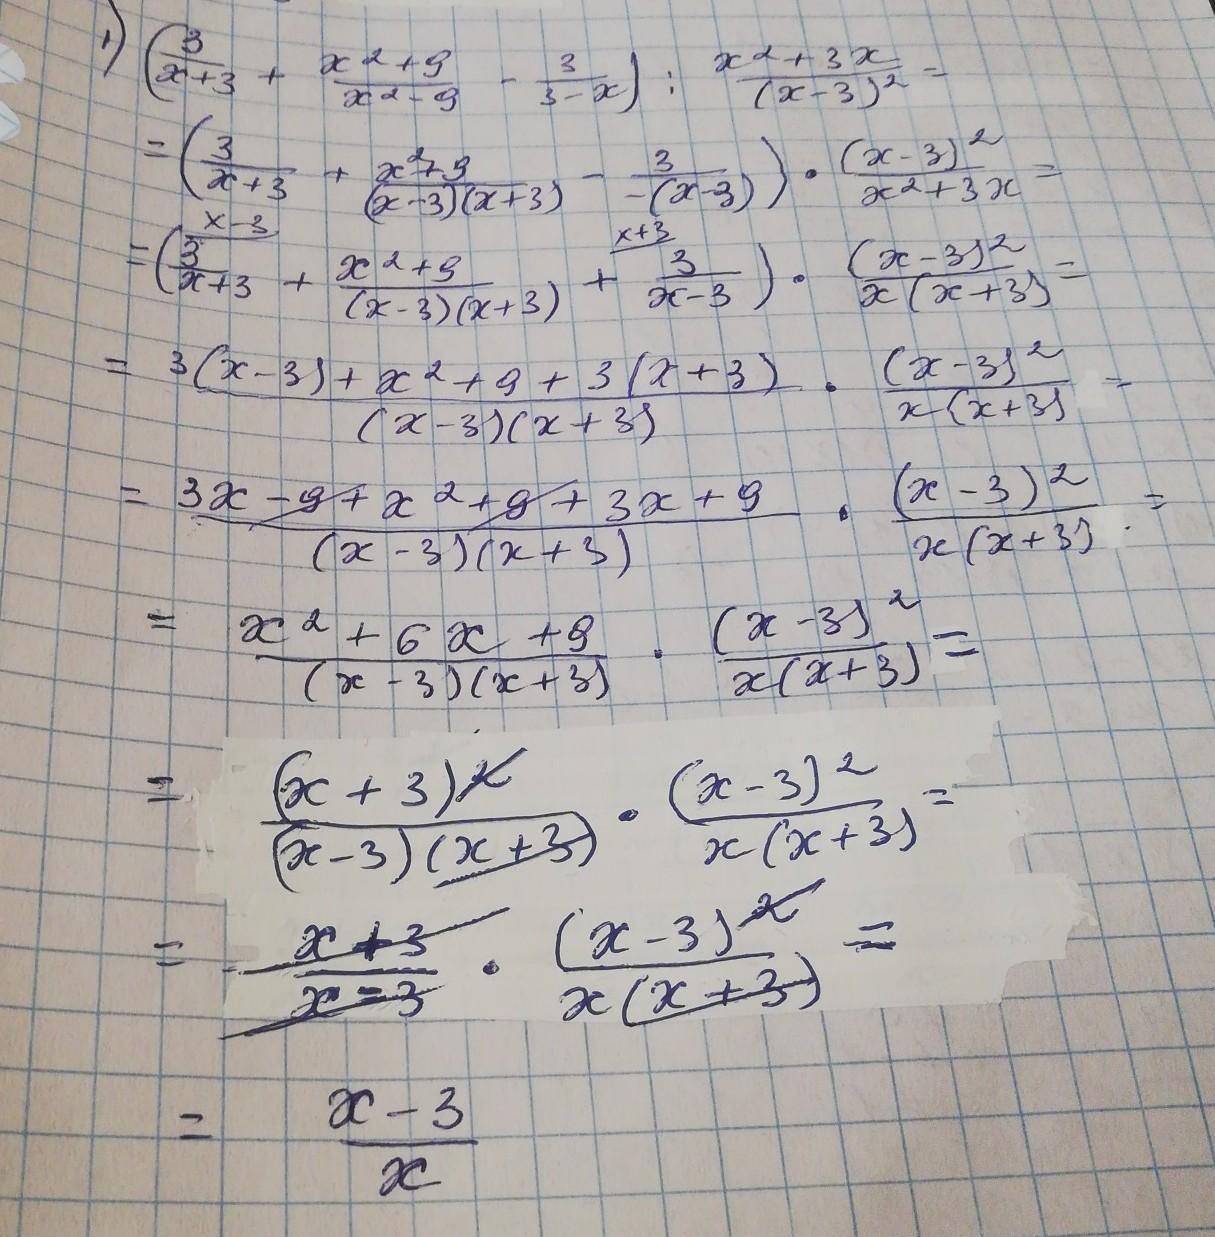 1) (3/(x+3) + (x²+9)/(x²-9) - 3/(3-x)) : (x²+3x)/(x-3)² =
= (3/(x+3) + (x²+9)/((x-3)(x+3)) - 3/(-(x-3))) · (x-3)²/(x²+3x) =
x-3 x+3
= (3/(x+3) + (x²+9)/((x-3)(x+3)) + 3/(x-3)) · (x-3)²/(x(x+3)) =
= (3(x-3)+x²+9+3(x+3))/((x-3)(x+3)) · (x-3)²/(x(x+3)) =
= (3x-9+x²+9+3x+9)/((x-3)(x+3)) · (x-3)²/(x(x+3)) =
= (x²+6x+9)/((x-3)(x+3)) · (x-3)²/(x(x+3)) =
= (x+3)²/((x-3)(x+3)) · (x-3)²/(x(x+3)) =
= (x+3)/(x-3) · (x-3)²/(x(x+3)) =
= (x-3)/x